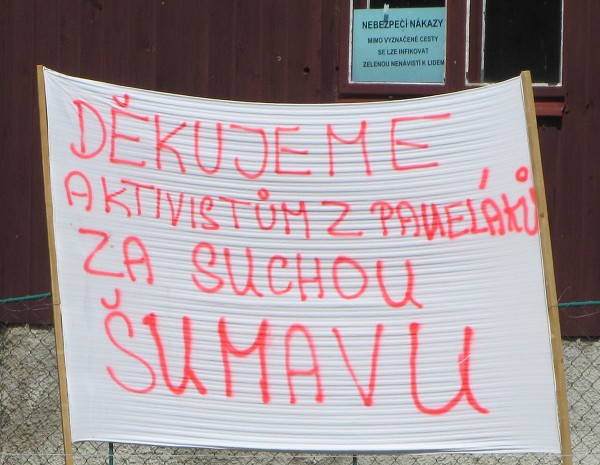 NEBEZPEČÍ NÁKAZY
MIMO VYZNAČENÉ CESTY
SE LZE INFIKOVAT
ZELENOU NENÁVISTÍ K LIDEM
DĚKUJEME
AKTIVISTŮM Z PANELÁKŮ
ZA SUCHOU
ŠUMAVU